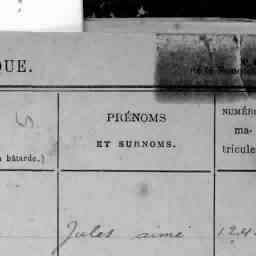 QUE.
PRÉNOMS
ET SURNOMS.
NUMÉRO
ma-
tricule
bâtarde.)
Jules aimé 124